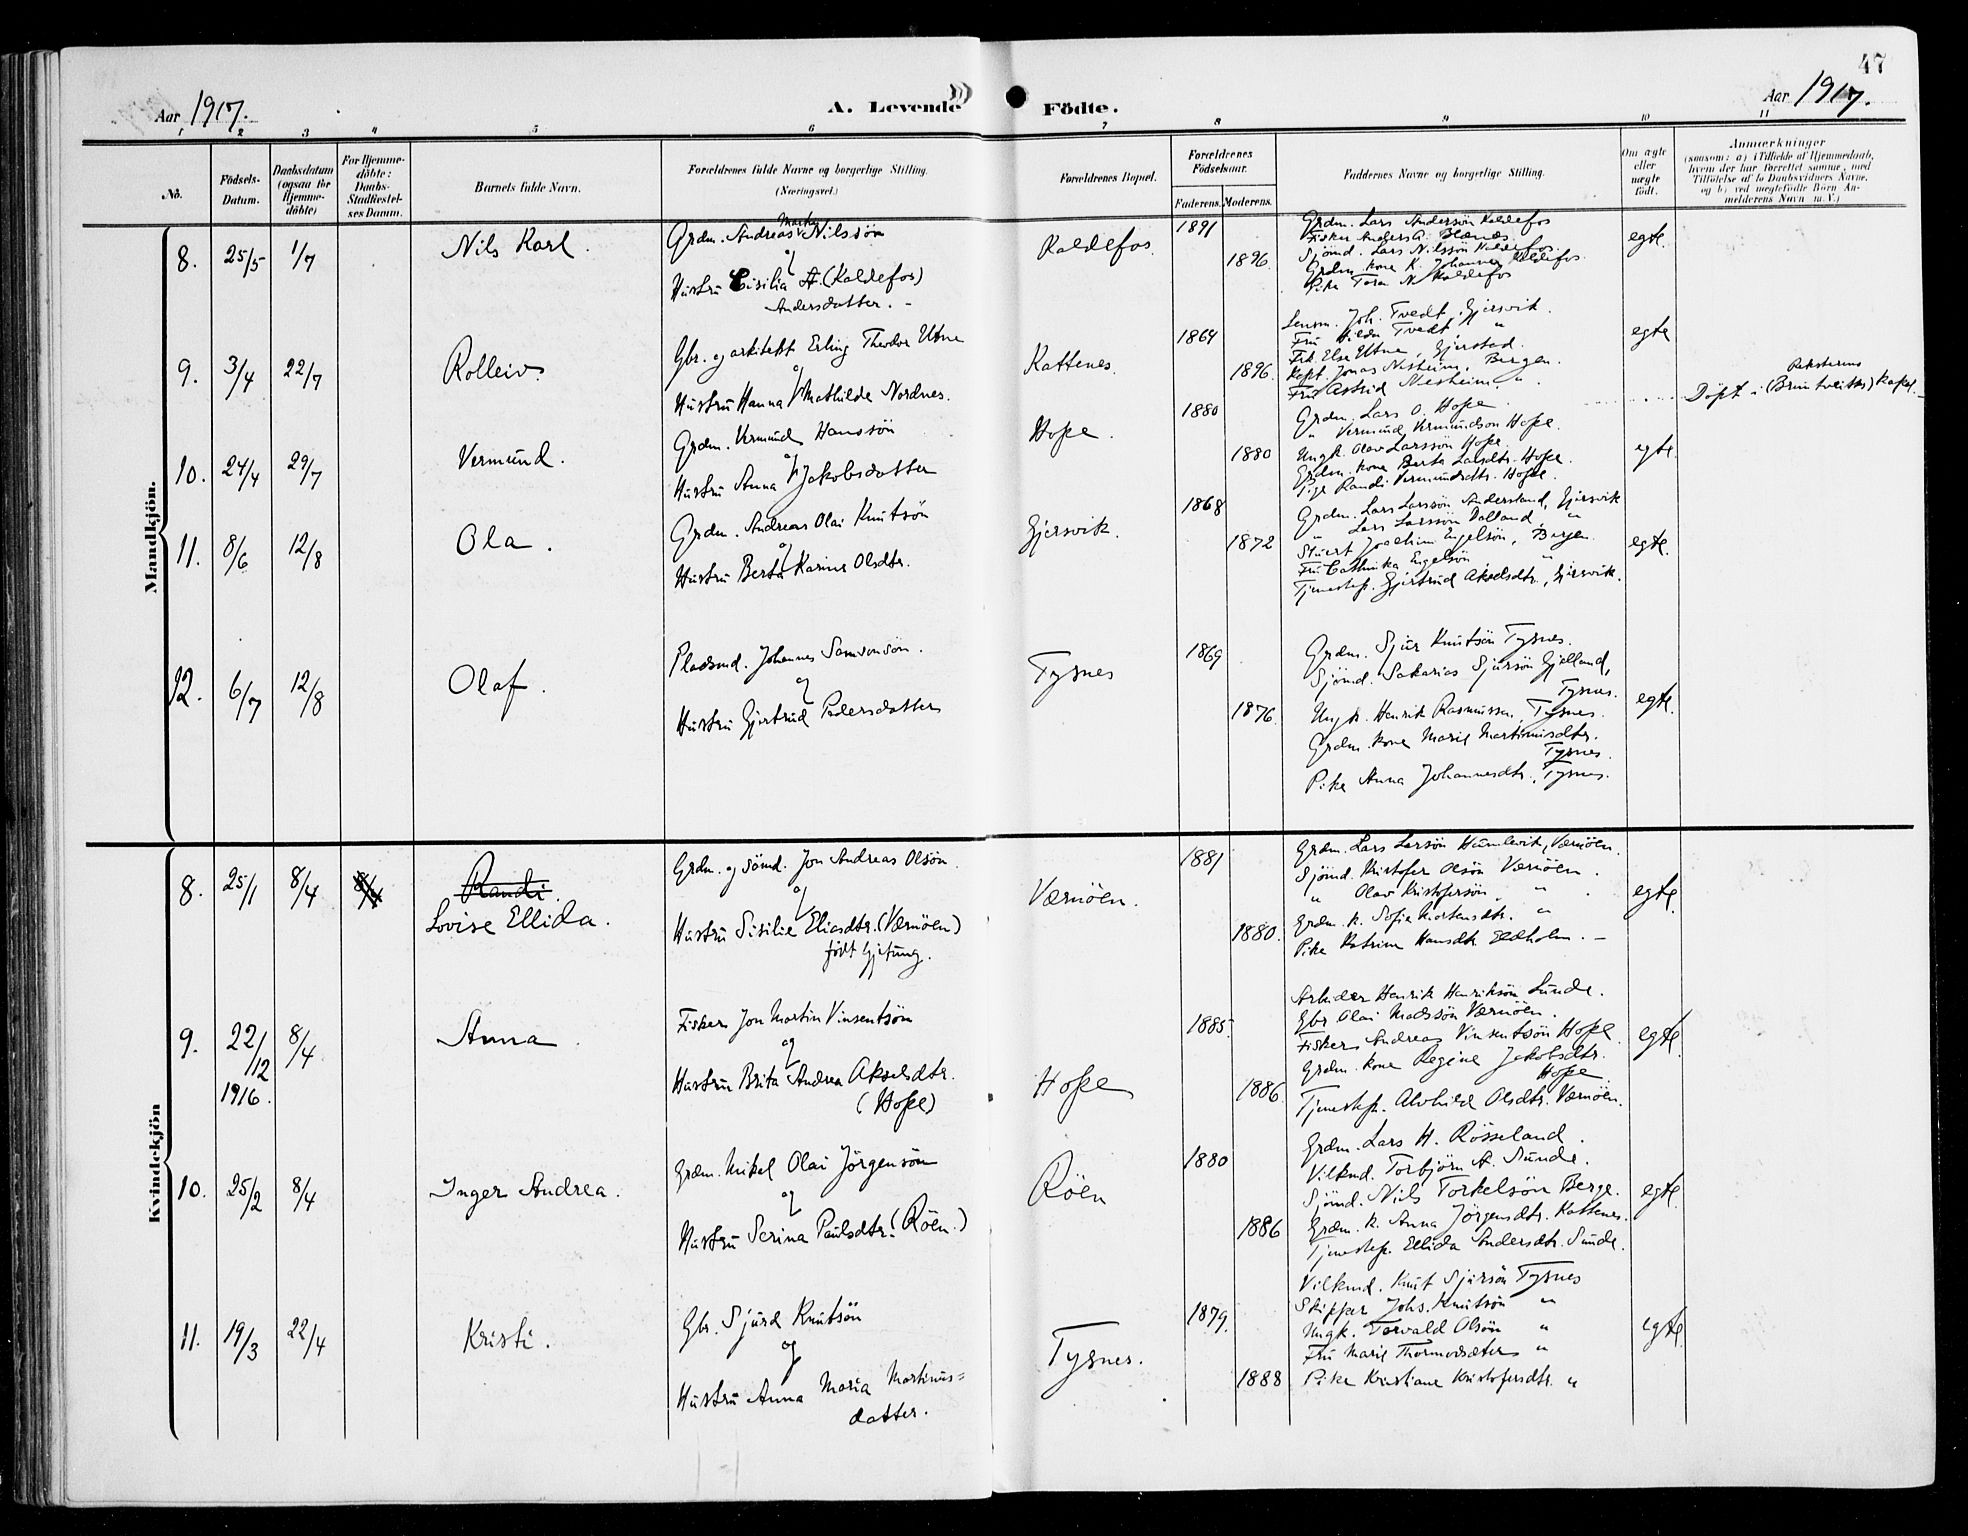 47
Aar 1917. A. Levende Födte. Aar 1917.
1 2 3 4 5 6 7 8 9 10 11
No. Födsels-Datum. Daabsdatum (ogsaa for Hjemme-döbte) For Hjemme-döbte: Daabs-Stadfæstel-ses Datum. Barnets fulde Navn. Forældrenes fulde Navne og borgerlige Stilling. (Næringsvei.) Forældrenes Bopæl. Forældrenes Födselsaar. Faderens. Moderens. Faddernes Navne og borgerlige Stilling. Om ægte eller uægte födt. Anmærkninger
(saasom: a) Tilfælde af Hjemmedaab, hvem der har forrettet samme, med Tilföielse af to Daabsvidners Navne, og b) ved uegtefödte Börn An-melderens Navn m. V.)
Mandkjön.
8. 25/5 1/7 Nils Karl. Grdm. Andreas Nilssön
og
Hustru Cisilia A. (Kaldefos)
Andersdatter. -
Kaldefos. 1891 1896.
Grdm. Lars Anderssön Kaldefos
Fisker Anders A.
Sjömd. Lars Nilssön Kaldefos.
Grdm. kone K. Johanna Kaldefos.
Pike Tora N. Kaldefos
egte.
9. 3/4 22/7 Rolleiv. Gbr. og arkitekt Erling Theodor Utne
og
Hustru Hanna Mathilde Nordnes.
Kattenes. 1864 1896.
Lensm. Joh. Tvedt, Gjersvik.
Fru Hilda Tvedt "
Frk. Else Utne, Gjerstad.
Kapt. Jonas Nesheim, Bergen.
Fru Astrid Nesheim "
egte
Döpt i (Bruntveiten) kapel.
10. 24/4 29/7 Vermund. Grdm. Vermund Hanssön
og
Hustru Anna Jakobsdatter
Hope. 1880 1880
Grdm. Lars O. Hope
" Vermund Vermundson Hope.
Ungk. Olav Larssön Hope.
Grdm. kone Berta Larsdtr. Hope.
Pige Randi Vermundsdtr. Hope.
egte.
11. 8/6 12/8 Ola. Grdm. Andreas Olai Knutsön
og
Hustru Berta Karine Olsdtr.
Gjersvik. 1868 1872
Grdm. Lars Larssön Anderland, Gjersvik
" Lars Larssön Dalland "
Stuert Joachim Engelsön, Bergen.
Fru Cathinka Engelsön "
Tjenestep. Gjertrud Akselsdtr., Gjersvik.
egte.
12. 6/7 12/8 Olaf. Pladsmd. Johannes Samsonsön.
og
Hustru Gjertrud Pedersdatter
Tysnes 1869 1876.
Grdm. Sjur Knutsön Tysnes.
Sjömd. Sakarias Sjursön Gjelland,
Tysnes.
Ungk. Henrik Rasmussen, Tysnes.
Grdm. kone Marie Martinusdtr.
Tysnes.
Pike Anna Johannesdtr., Tysnes.
egte.
Kvindekjön
8. 25/1 8/4 Randi.
Lovise Ellida.
Grdm. og Sömd. Jon Andreas Olsön
og
Hustru Sisilie Eliasdtr. (Værnöen)
födt Gjetung.
Værnöen. 1881 1880.
Grdm. Lars Larsön Humlevik, Værnöen.
Sjömd. Kristofer Olsön Værnöen.
" Olav Kristofersön "
Grdm. k. Sofie Mortensdtr. "
Pike Katrine Hansdtr. Eldholm. -
egte.
9. 22/12 1916. 8/4 Anna. Fisker Jon Martin Vinsentsön
og
Hustru Brita Andrea Akselsdtr.
(Hope)
Hope 1885 1886.
Arbeider Henrik Henriksön Sunde.
Gbr. Olai Madssön Værnöen.
Fisker Andreas Vinsentsön Hope
Grdm. kone Regine Jakobsdtr.
Hope
Tjenestep. Alvhild Olsdtr. Værnöen.
egte.
10. 25/2 8/4 Inger Andrea. Grdm. Mikel Olai Jörgensön
og
Hustru Serina Paulsdtr. (Röen.)
Röen 1880 1886
Grdm. Lars H. Rösseland.
Vilkmd. Torbjörn A. Sunde.
Sjömd. Nils Torkelsön Berge.
Grdm. k. Anna Jörgensdtr. Kattenes.
Tjenestep. Ellida Andersdtr. Sunde.
egte.
11. 19/3 22/4 Kristi. Gbr. Sjurd Knutsön
og
Hustru Anna Maria Martinus=
datter.
Tysnes. 1879. 1888
Vilkmd. Knut Sjursön Tysnes
Skipper Johs. Knutsön "
Ungk. Torvald Olsön "
Fru Marie Thormodsæter "
Pike Kristiane Kristofersdtr. "
egte.